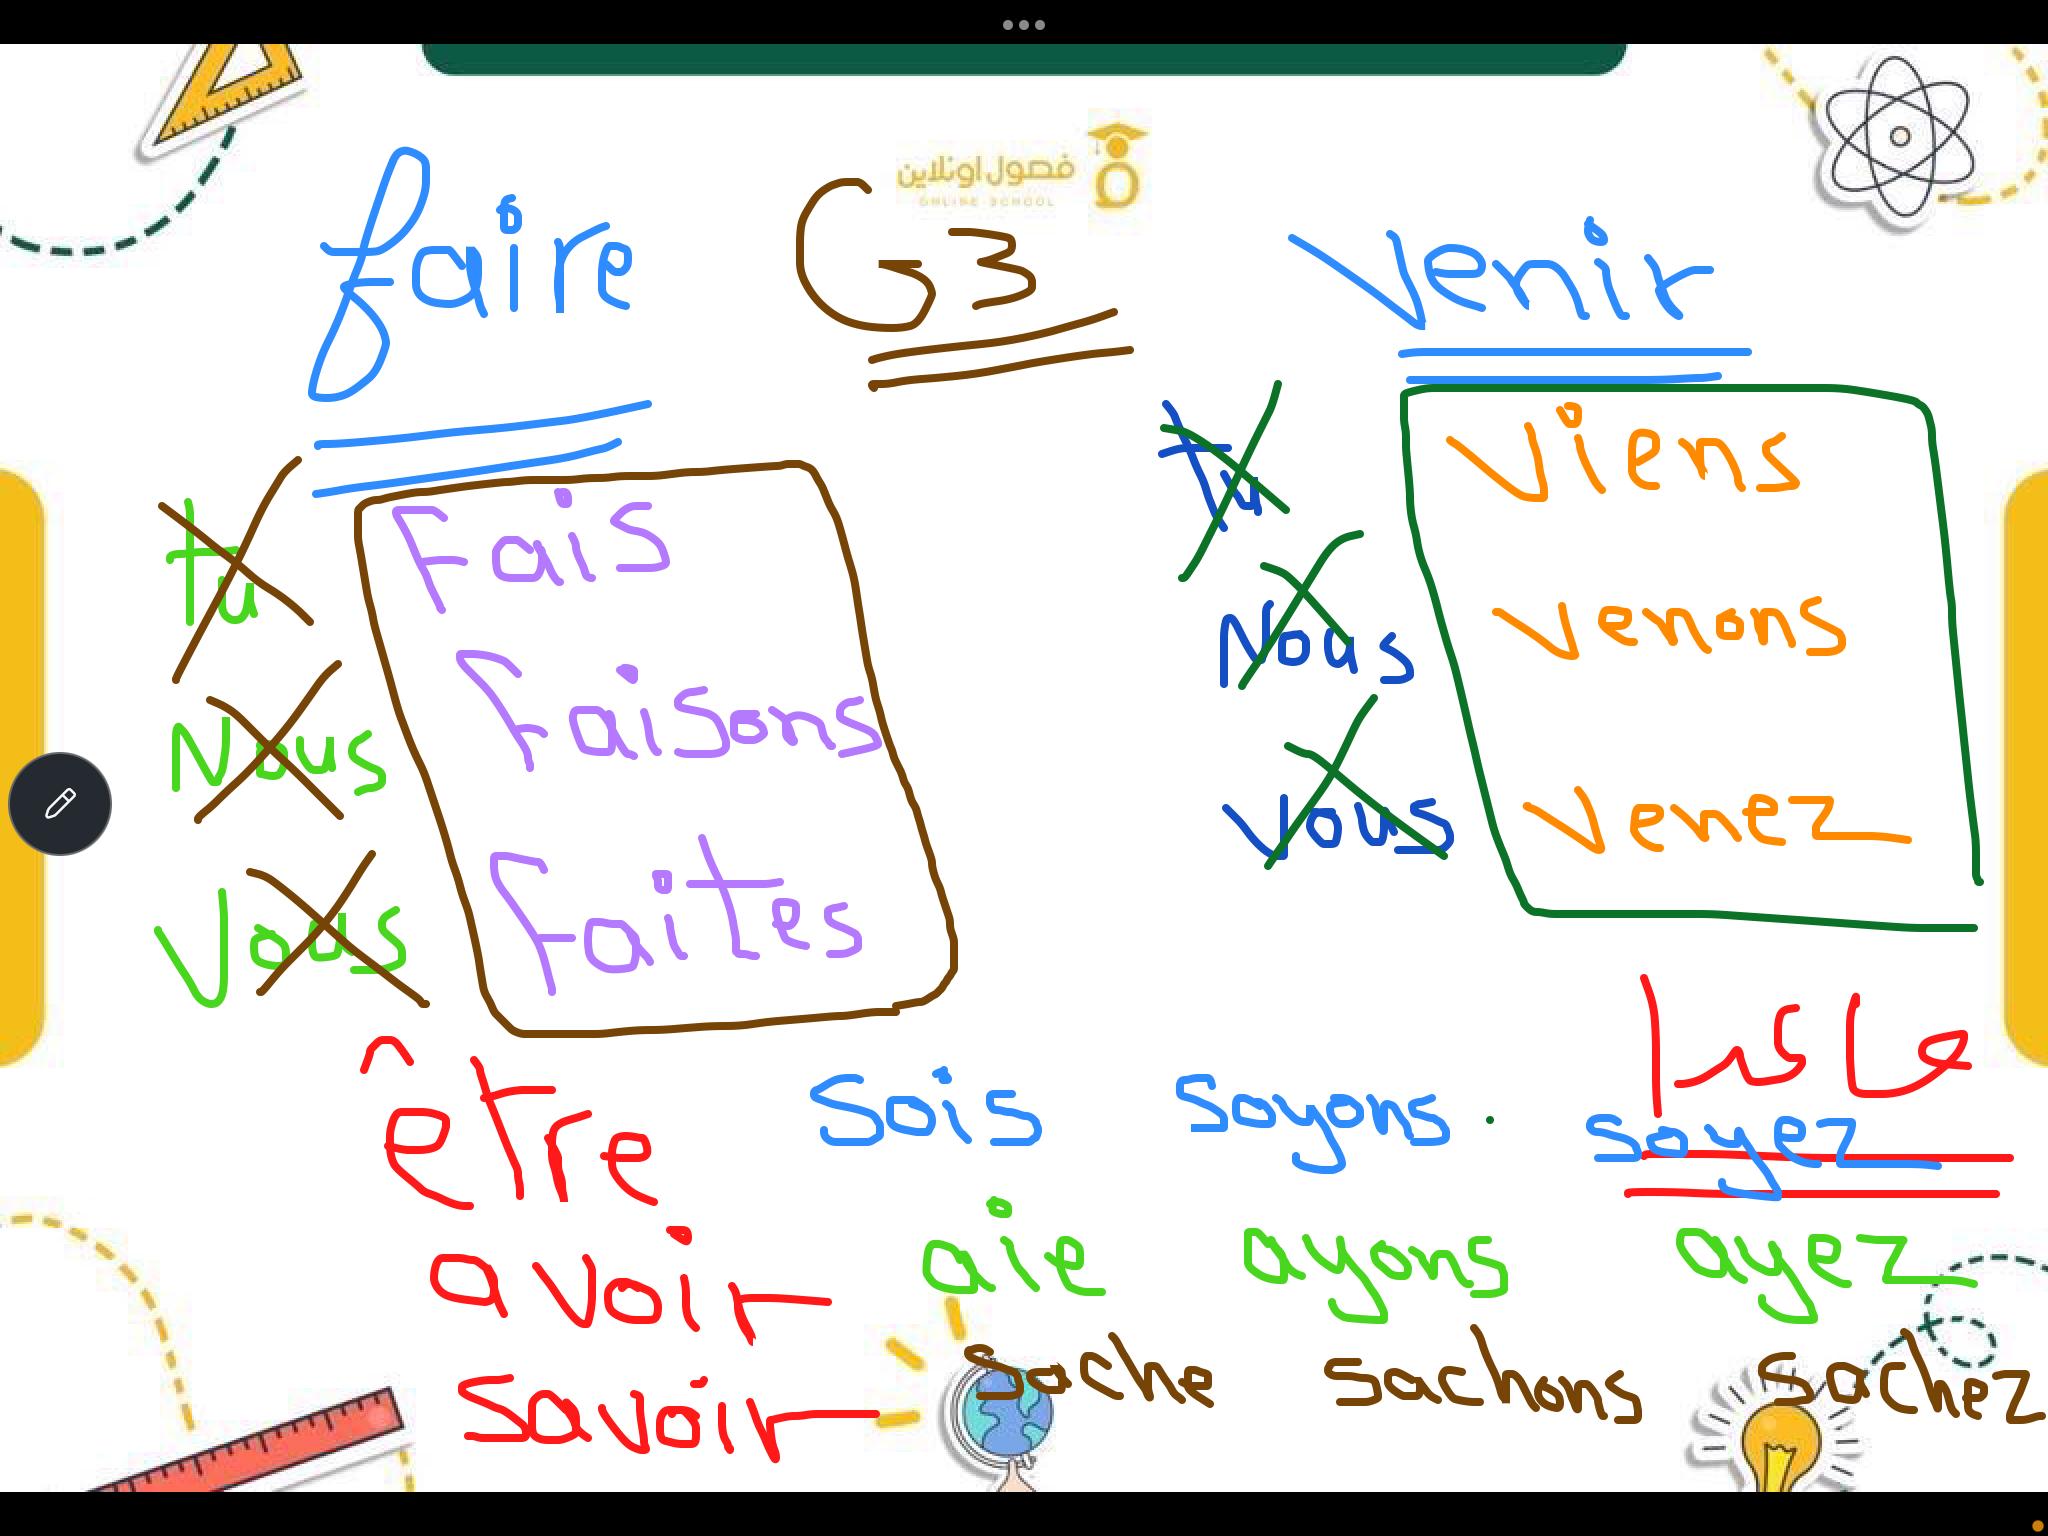 فصول اونلاين
ONLINE SCHOOL
faire
G3
Venir
tu Fais
Nous Faisons
Vous Faites
Tu Viens
Nous Venons
Vous Venez
être Sois Soyons . soyez
avoir aie ayons ayez
savoir sache sachons sachez